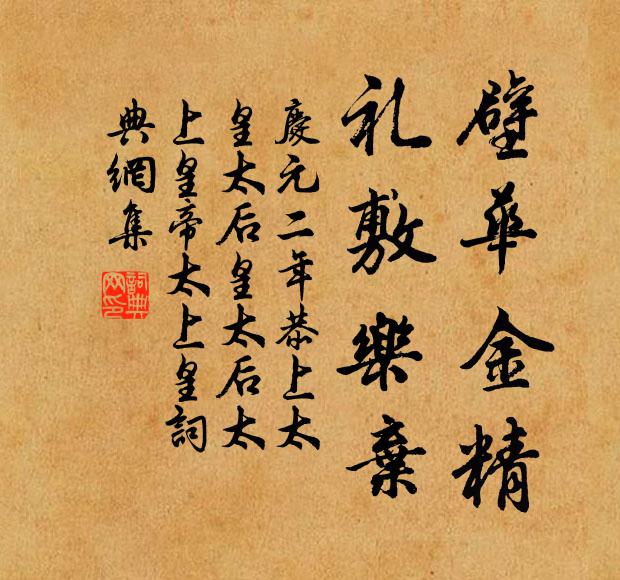 璧華金精
礼敷樂棄
慶元二年恭上太
皇太后皇太后太
上皇帝太上皇詞
典網集
詞典
网印